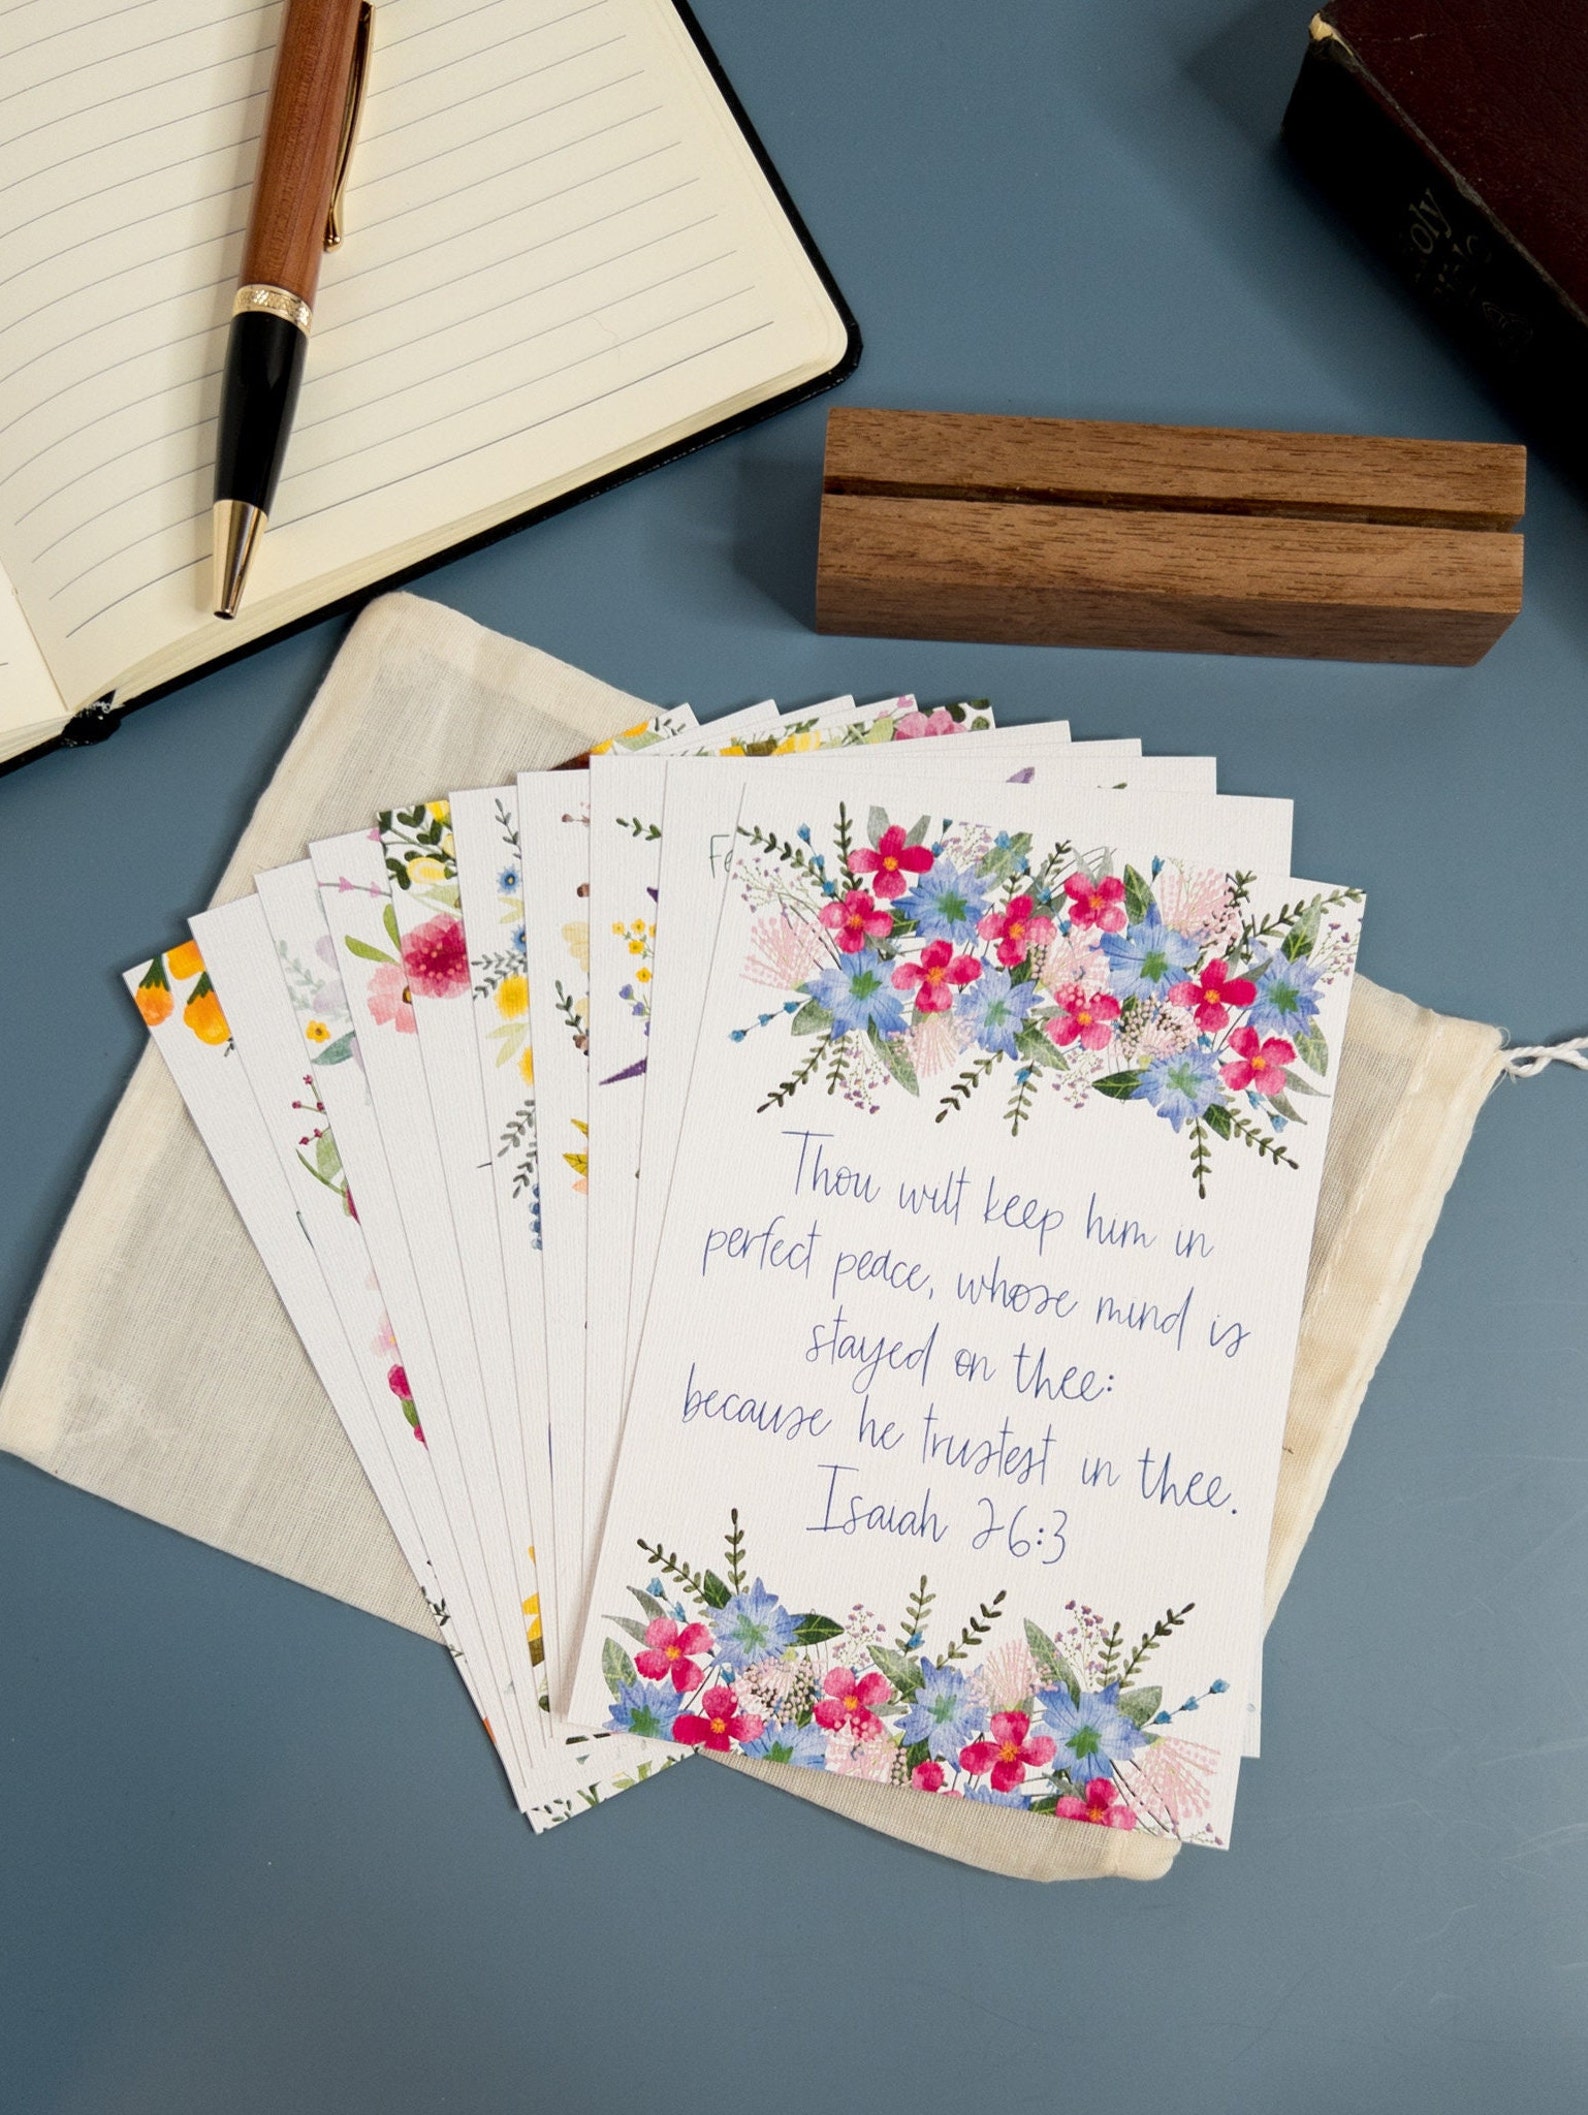 Holy
Thou wilt keep him in
perfect peace, whose mind is
stayed on thee:
because he trustest in thee.
Isaiah 26:3